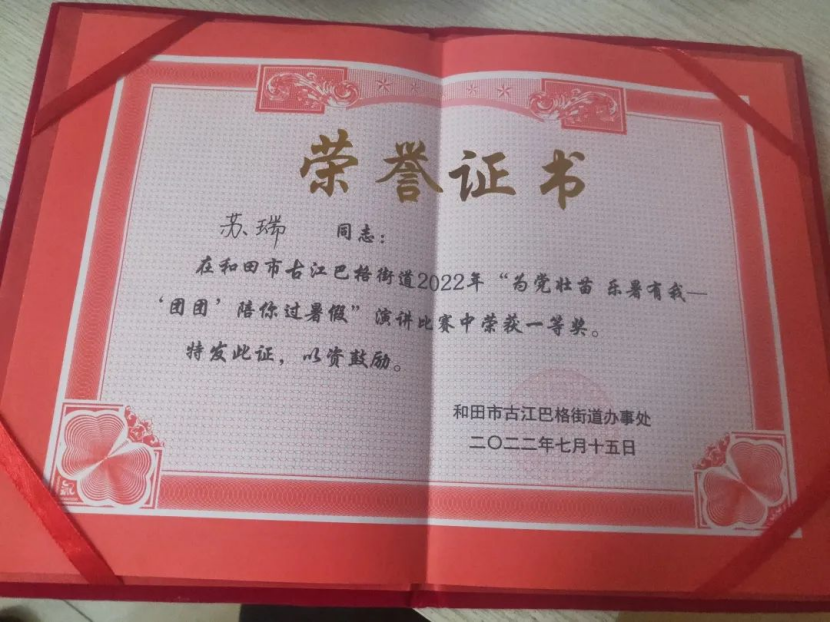 荣誉证书
苏瑞 同志：
在和田市古江巴格街道2022年“为党壮苗 乐暑有我—
‘团团’陪你过暑假”演讲比赛中荣获一等奖。
特发此证，以资鼓励。
和田市古江巴格街道办事处
二〇二二年七月十五日